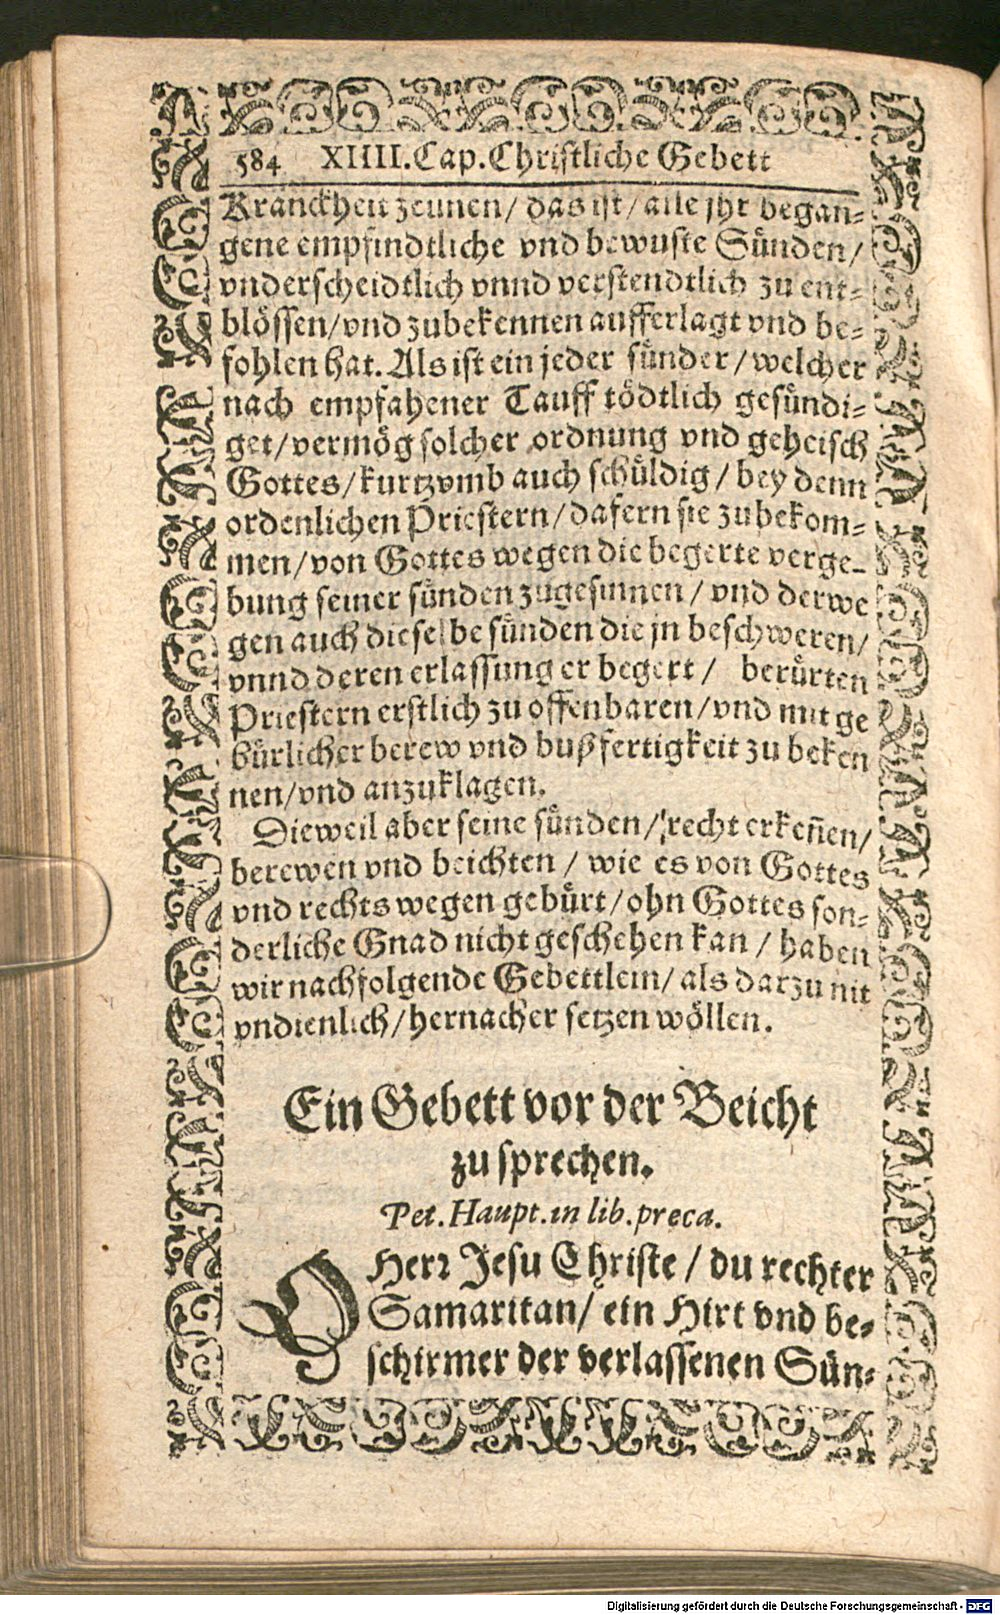 584 XIIII.Cap.Christliche Gebett
Kranckheit zeunen/ das ist/ alle jhr began⸗
gene empfindtliche vnd bewuste Sünden/
vnderscheidtlich vnnd verstendtlich zu ent⸗
blössen/vnd zubekennen aufferlagt vnd be⸗
fohlen hat. Als ist ein jeder sünder/welcher
nach empfahener Tauff tödtlich gesündi⸗
get/vermög solcher ordnung vnd geheisch
Gottes/kurtzvmb auch schüldig/ bey denn
ordenlichen Priestern/dafern sie zubekom⸗
men/von Gottes wegen die begerte verge⸗
bung seiner sünden zugesinnen/ vnd derwe
gen auch dieselbe sünden die jn beschweren/
vnnd deren erlassung er begert/ berürten
Priestern erstlich zu offenbaren/vnd mit ge
bürlicher berew vnd bußfertigkeit zu beken
nen/vnd anzuklagen.
Dieweil aber seine sünden/ recht erkeñen/
berewen vnd beichten/ wie es von Gottes
vnd rechts wegen gebürt/ohn Gottes son⸗
derliche Gnad nicht geschehen kan/ haben
wir nachfolgende Gebettlein/ als darzu nit
vndienlich/hernacher setzen wöllen.
Ein Gebett vor der Beicht
zu sprechen.
Pet. Haupt. in lib. preca.
O Herr Jesu Christe/ du rechter
Samaritan/ ein Hirt vnd be⸗
schirmer der verlassenen Sün⸗
Digitalisierung gefördert durch die Deutsche Forschungsgemeinschaft - DFG